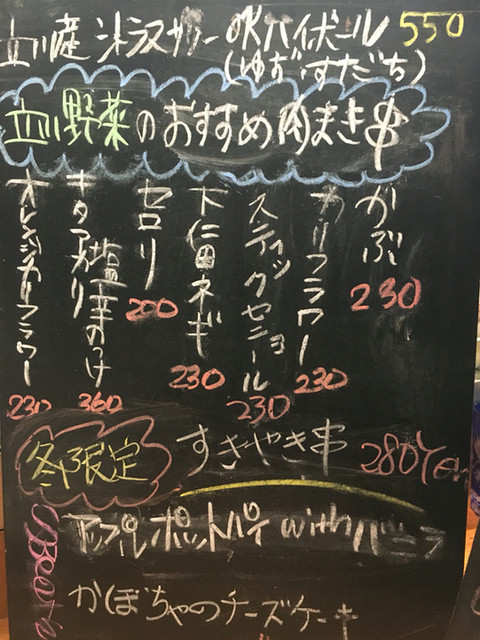 立川産シトラスサワー 吹ハイボール 550
(ゆず すだち)
立川野菜のおすすめ肉まき串
かぶ 230
カリフラワー 230
スティックセニョール 230
下仁田ネギ 230
セロリ 200
キタアカリ塩辛のっけ 360
オレンジカリフラワー 230
冬限定 すきやき串 280Yen
アップルポットパイ withバニラ
かぼちゃのチーズケーキ